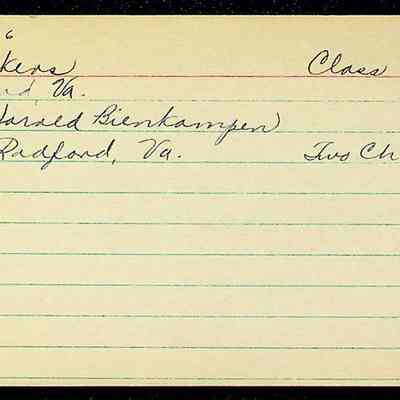 6
kers Class
d, Va.
Harold Bienkampen
Radford, Va. Two Ch